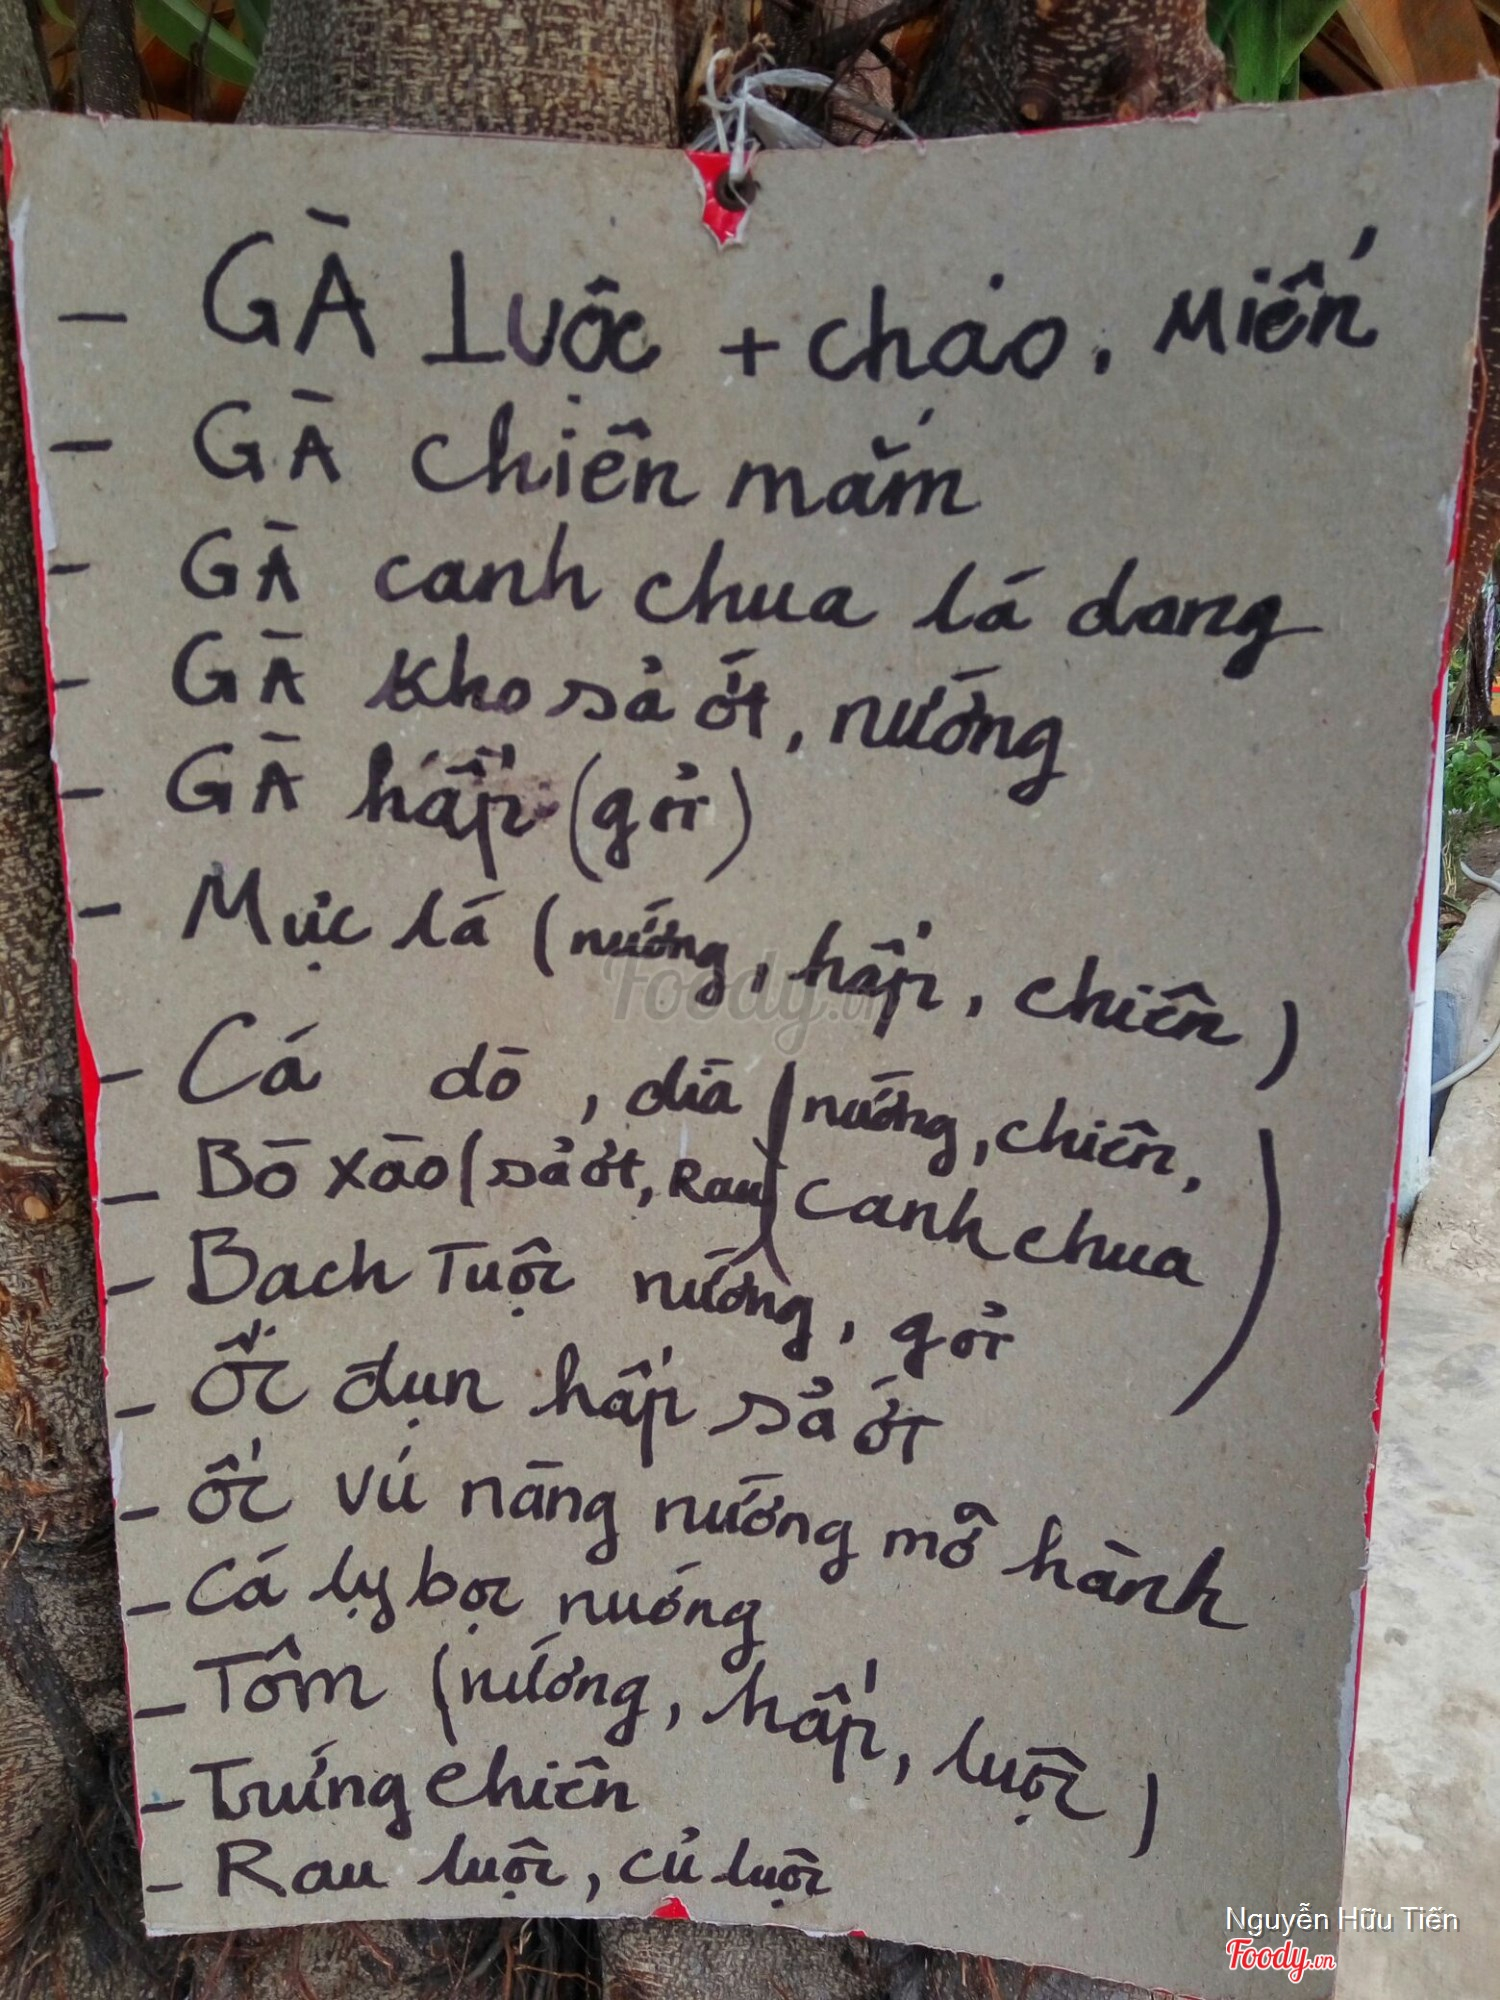 - GÀ Luộc + cháo, Miến
- GÀ chiên mắm
- GÀ canh chua lá dang
- GÀ kho sả ớt, nướng
- GÀ hấp (gỏi)
- Mực lá (nướng, hấp, chiên)
- Cá dò, dìa (nướng, chiên, canh chua)
- Bò xào (sả ớt, Rau)
- Bach Tuộc nướng, gỏi
- ốc đụn hấp sả ớt
- ốc vú nàng nướng mỡ hành
- Cá lỵ bọc nướng
- Tôm (nướng, hấp, luộc)
- Trứng chiên
- Rau luộc, củ luộc
Foody.vn
Nguyễn Hữu Tiến
Foody.vn